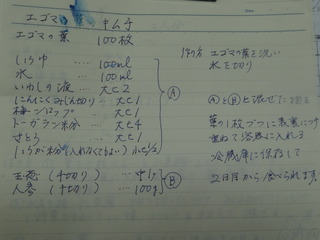 エゴマの葉キムチ
エゴマの葉 100枚
しょうゆ … 100ml
水 … 100ml
いわしの液 … 大さじ2
にんにくみじん切り 大さじ1
梅シロップ … 大さじ1
トーガラシ粉 … 大さじ4
さとう … 大さじ1
しょうが粉(入れなくてもよい) 小さじ1/2
Ⓐ
玉葱(千切り) … 中1ケ
人参(千切り) … 100g
Ⓑ
作り方 エゴマの葉を洗い
水を切り
ⒶとⒷを混ぜた
葉の1枚づつに表裏につけ
重ねて容器に入れる
冷蔵庫に保存して
2日目から食べられます。